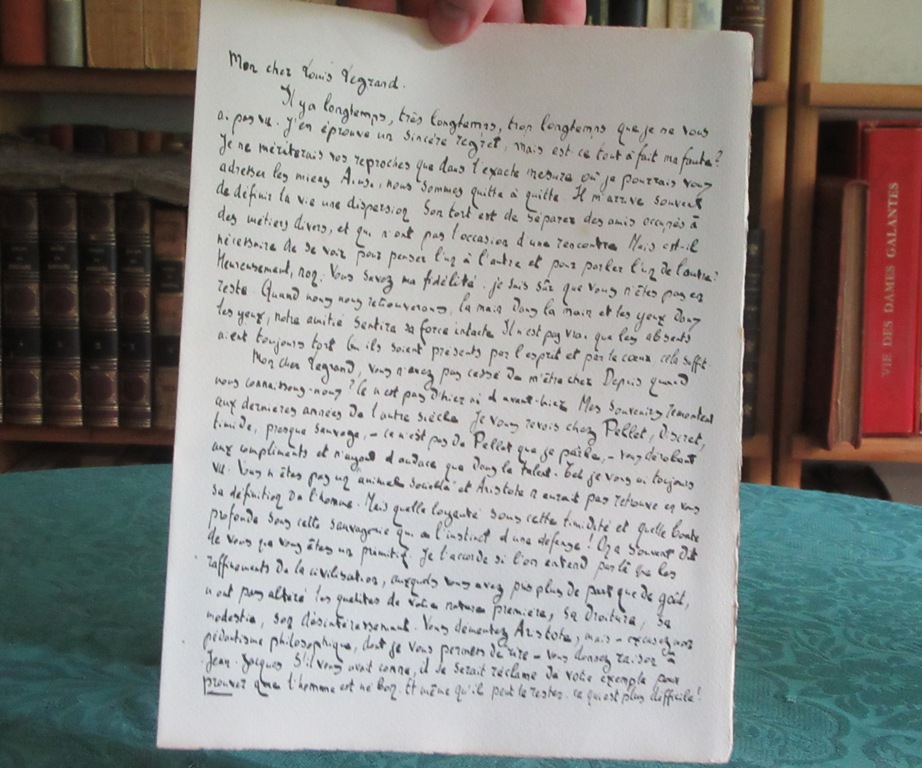 Mon cher Louis Legrand.
Il y a longtemps, très longtemps, trop longtemps que je ne vous
ai pas vu. J'en éprouve un sincère regret, mais est ce tout à fait ma faute?
Je ne mériterais vos reproches que dans l'exacte mesure où je pourrais vous
adresser les miens. Ainsi, nous sommes quitte à quitte. Il m'arrive souvent
de définir la vie une dispersion. Son tort est de séparer des amis occupés à
des métiers divers, et qui n'ont pas l'occasion d'une rencontre. Mais est-il
nécessaire de se voir pour penser l'un à l'autre et pour parler l'un de l'autre?
Heureusement, non. Vous savez ma fidélité. je suis sûr que vous n'êtes pas en
reste. Quand nous nous retrouverons, la main dans la main et les yeux dans
les yeux, notre amitié sentira sa force intacte. Il n'est pas vrai que les absents
aient toujours tort. Qu'ils soient présents par l'esprit et par le cœur, cela suffit.
Mon cher Legrand, vous n'avez pas cessé de m'être cher. Depuis quand
nous connaissons-nous? Ce n'est pas d'hier ni d'avant-hier. Mes souvenirs remontent
aux dernières années de l'autre siècle. Je vous revois chez Pellet, discret,
timide, presque sauvage, - ce n'est pas de Pellet que je parle, - vous dérobant
aux compliments et n'ayant d'audace que dans le talent. Tel je vous ai toujours
vu. Vous n'êtes pas un animal sociable et Aristote n'aurait pas retrouvé en vous
sa définition de l'homme. Mais quelle loyauté sous cette timidité et quelle bonté
profonde sous cette sauvagerie qui a l'instinct d'une défense! On a souvent dit
de vous que vous êtes un primitif. Je l'accorde si l'on entend par là que les
raffinements de la civilisation, auxquels vous avez pris plus de part que de goût,
n'ont pas altéré les qualités de votre nature première, sa droiture, sa
modestie, son désintéressement. Vous démentez Aristote, mais - excusez mon
pédantisme philosophique, dont je vous permets de rire - vous donnez raison à
Jean-Jacques. S'il vous avait connu, il se serait réclamé de votre exemple pour
prouver que l'homme est né bon. Et même qu'il peut le rester. ce qui est plus difficile!
VIE DES DAMES GALANTES